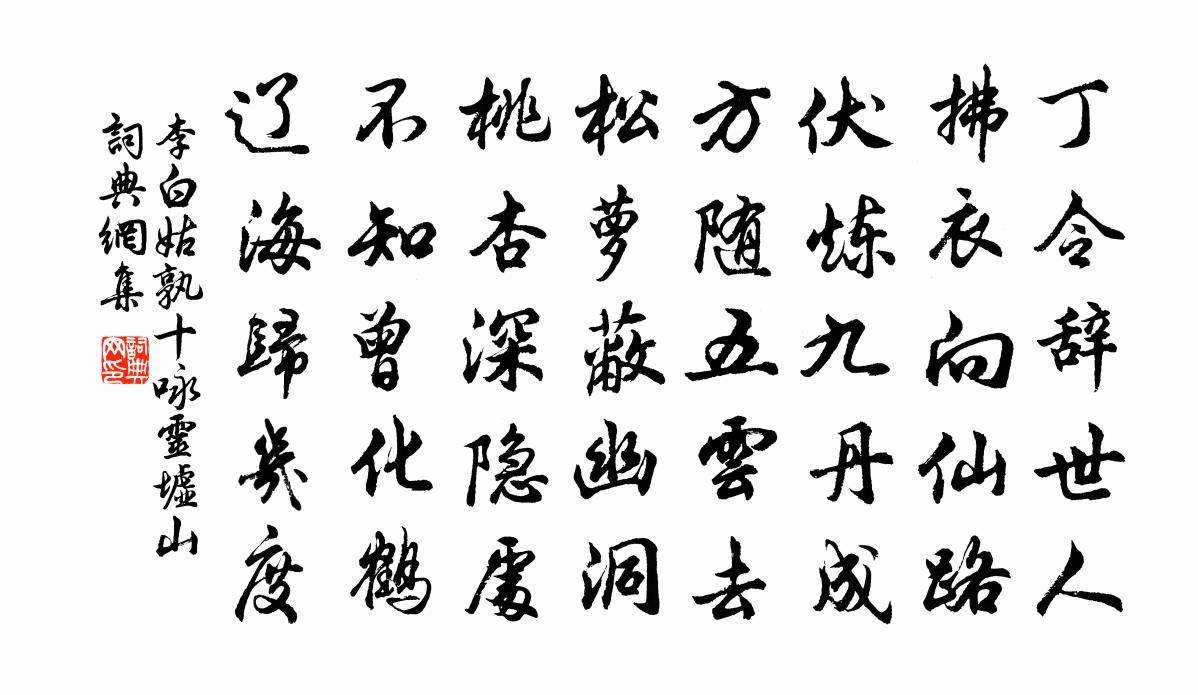 丁令辞世人
拂衣向仙路
伏炼九丹成
方随五雲去
松萝蔽幽洞
桃杏深隐處
不知曾化鶴
辽海歸幾度
李白姑孰十咏靈墟山
詞典網集
詞典
网印